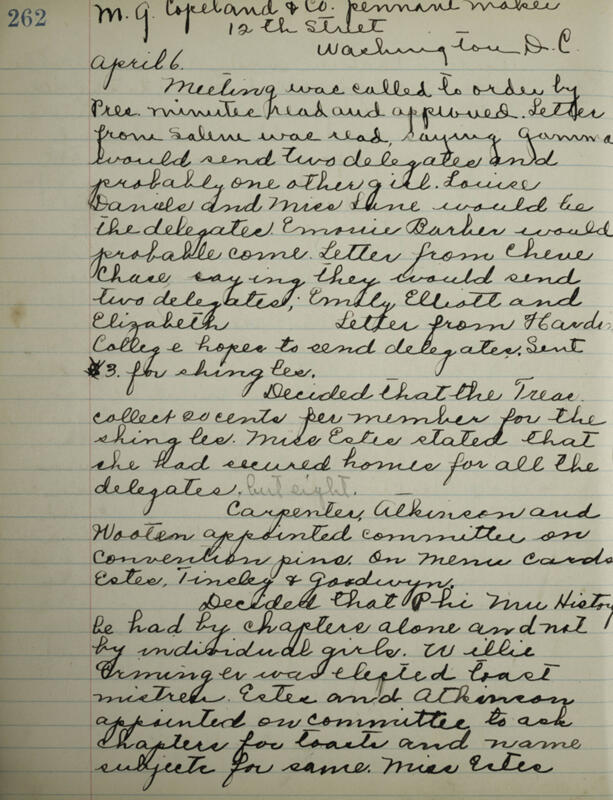 262
M. G. Copeland & Co. pennant maker
12th Street
Washington D.C.
April 6.
Meeting was called to order by
Pres. minutes read and approved. Letter
from Salem was read, saying Gamma
would send two delegates and
probably one other girl. Louise
Daniels and Miss Lane would be
the delegates. Emorie Barber would
probable come. Letter from Cheve
Chase saying they would send
two delegates; Emily Elliott and
Elizabeth Letter from Hardin
College hopes to send delegates. Sent
$3. for shingles.
Decided that the Treas.
collect 20 cents per member for the
shingles. Miss Estes stated that
she had secured homes for all the
delegates. but eight.
Carpenter, Atkinson and
Wooten appointed committee on
convention pins. On menu cards
Estes, Tinsley & Goodwyn.
Decided that Phi Mu History
be had by chapters alone and not
by individual girls. Willie
Erminger was elected toast
mistress. Estes and Atkinson
appointed on committee to ask
chapters for toasts and name
subjects for same. Miss Estes